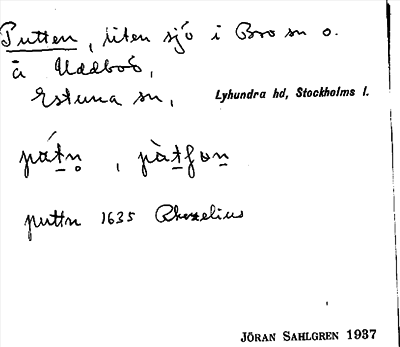 Putten, liten sjö i Bro sn o.
å Uddboö,
Estuna sn, Lyhundra hd, Stockholms l.
puttn 1635 Rhezelius
JÖRAN SAHLGREN 1937